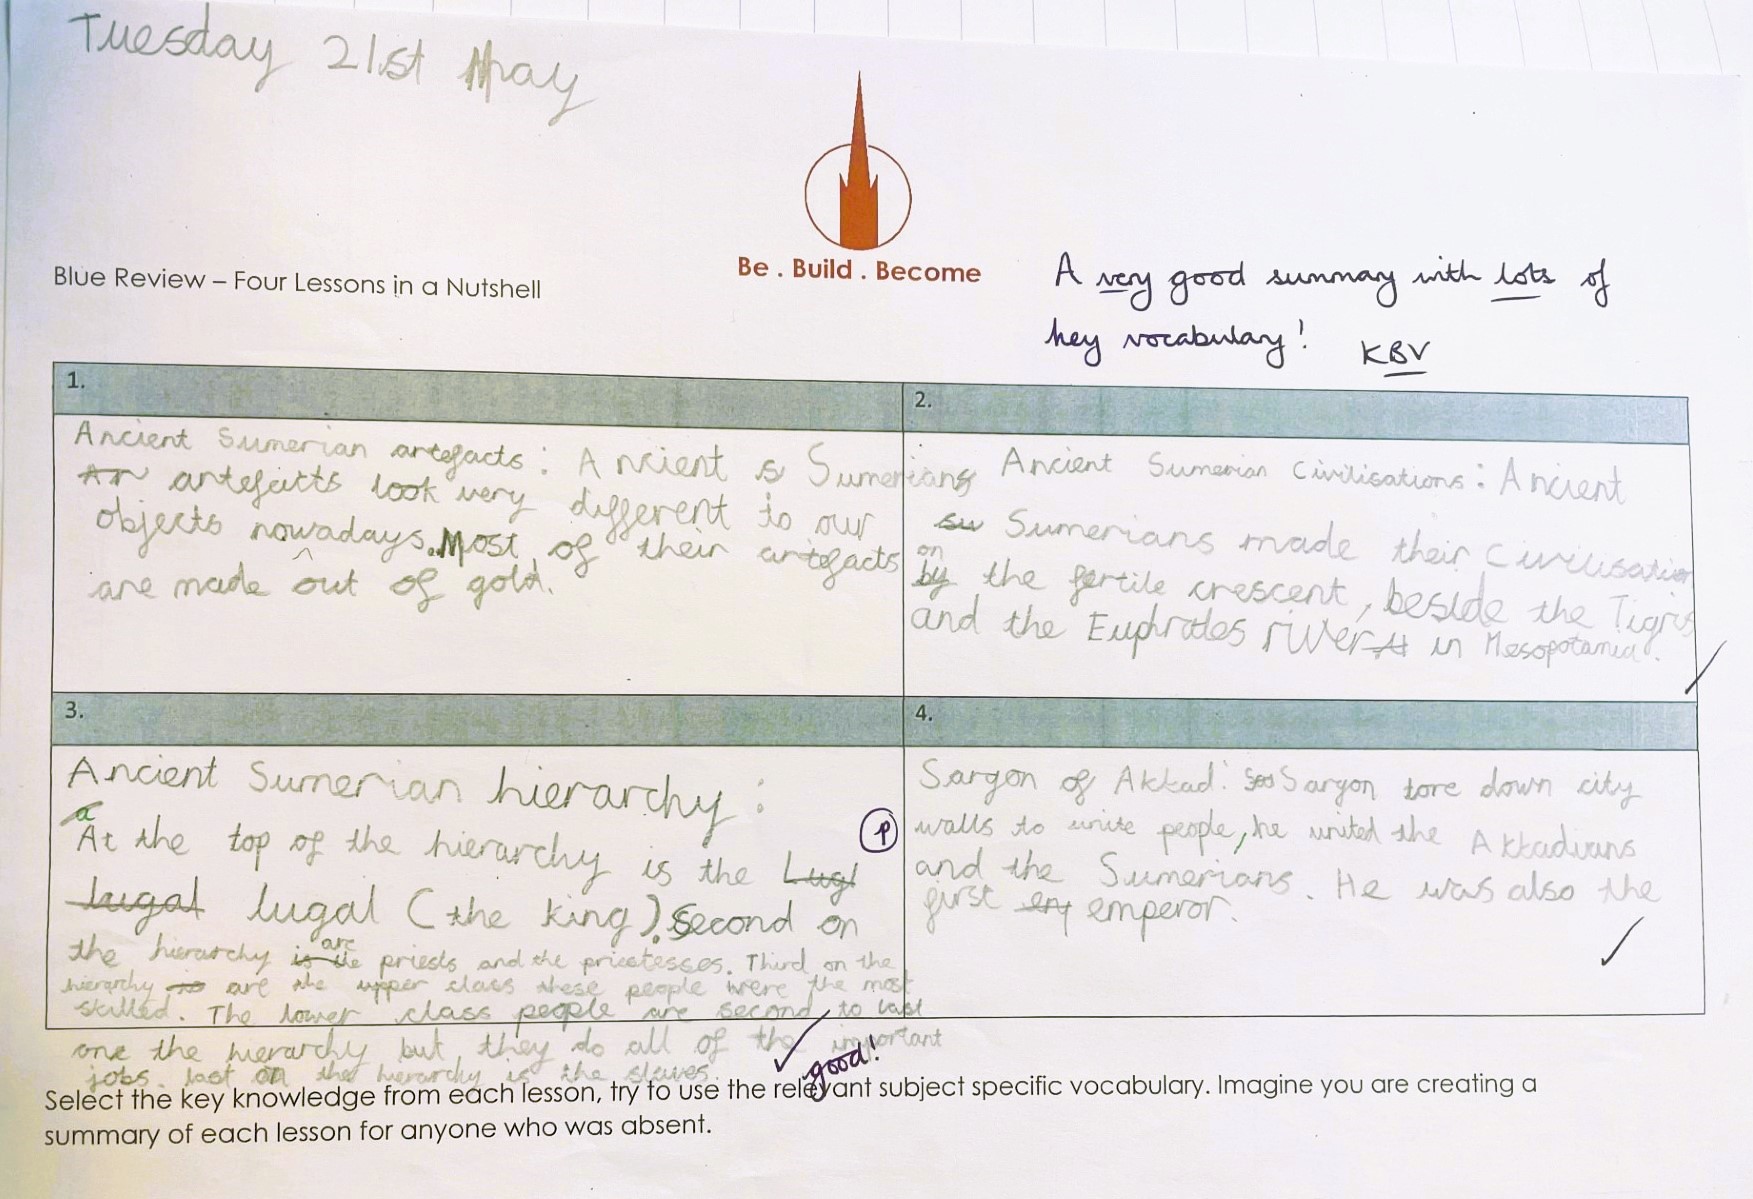 Tuesday 21st May
Be . Build . Become
Blue Review – Four Lessons in a Nutshell
A very good summary with lots of
key vocabulary!
KBV
1.
Ancient Sumerian artefacts: Ancient s Sumerians
Ar artefactts look very different to our
objects nowadays. Most of their artefacts
are made out of gold.
2.
Ancient Sumerian Civilisations: Ancient
su Sumerians made their Civilisation
by on the fertile crescent, beside the Tigris
and the Euphrates river in Mesopotamia.
3.
Ancient Sumerian hierarchy:
At the top of the hierarchy is the Lugl
lugal lugal (the king). Second on
the hierarchy is the are priests and the priestesses. Third on the
hierarchy are the upper class these people were the most
skilled. The lower class people are second to last
one the hierarchy but they do all of the important
jobs. last on the hierarchy is the slaves.
P
good!
4.
Sargon of Akkad: Sargon tore down city
walls to unite people, he united the Akkadians
and the Sumerians. He was also the
first em emperor.
Select the key knowledge from each lesson, try to use the relevant subject specific vocabulary. Imagine you are creating a
summary of each lesson for anyone who was absent.